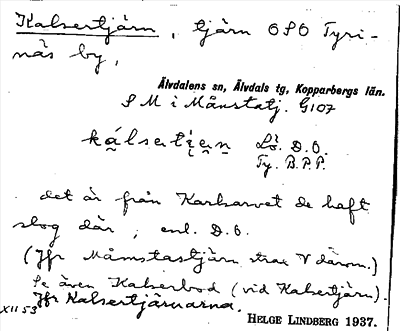 Kalsertjärn, tjärn OSO Tyri-
näs by,
Älvdalens sn, Älvdals tg, Kopparbergs län.
S M i Månstatj. G107
kálsertien Lö. D.O.
Ty. B.P.P.
det är från Karlsarvet de haft
slog där, enl. D.O.
(Jfr Måmstastjärn strax V därom.)
Se även Kalserbod (vid Kalsertjärn).
Jfr Kalsertjärnarna.
XII 53
HELGE LINDBERG 1937.